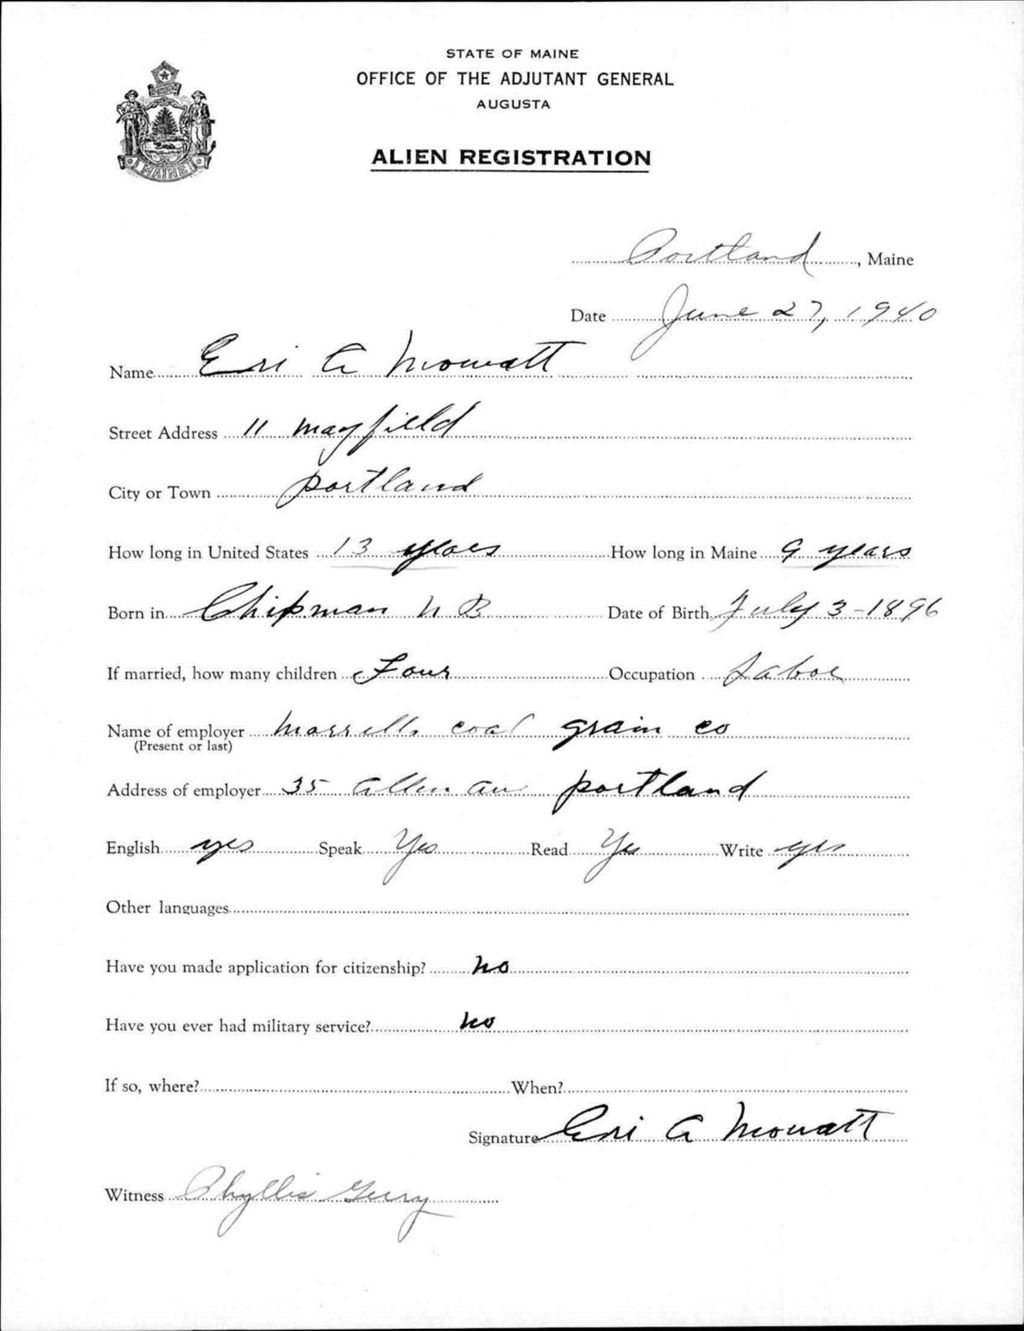 STATE OF MAINE
OFFICE OF THE ADJUTANT GENERAL
AUGUSTA
ALIEN REGISTRATION
MAINE
Portland, Maine
Date June 27, 1940
Name Eri A Mowatt
Street Address 11 mayfield
City or Town portland
How long in United States 13 How long in Maine 9 years
Born in Chipman N B Date of Birth July 3-1896
If married, how many children Four Occupation Labor
Name of employer coal grain co
(Present or last)
Address of employer 35 allen portland
English yes Speak Yes Read Yes Write yes
Other languages
Have you made application for citizenship? no
Have you ever had military service? no
If so, where? When?
Signature Eri A Mowatt
Witness Phyllis Gerry